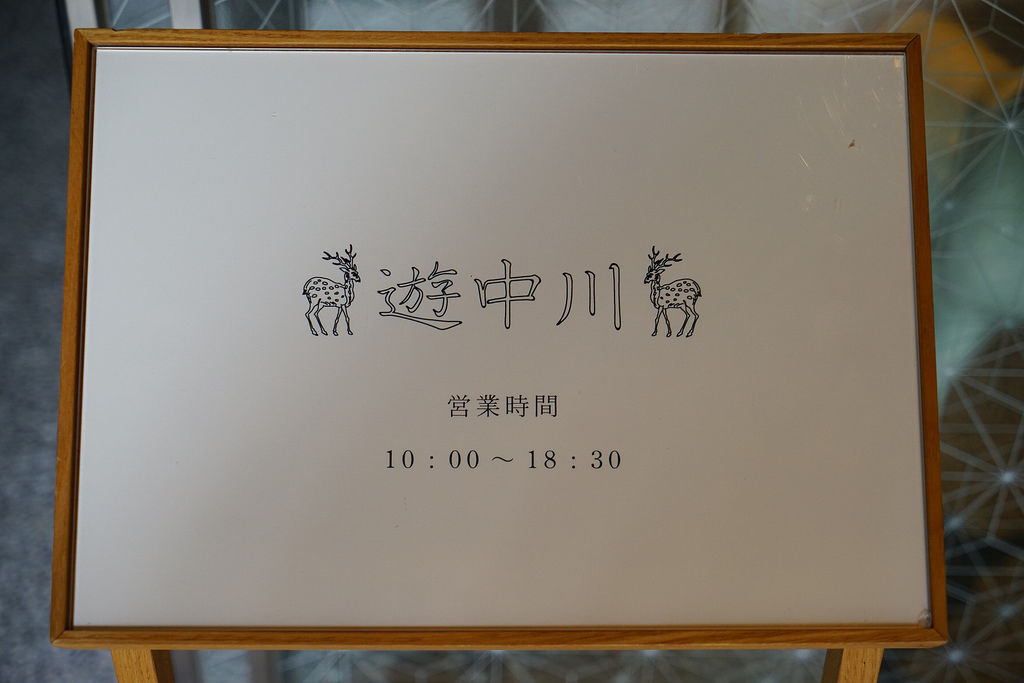 遊中川
営業時間
10：00〜18：30